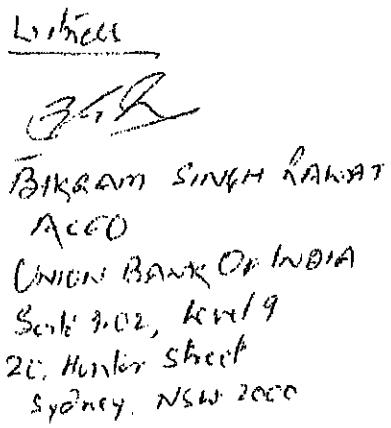 Witness
BIKRAM SINGH RAWAT
ACEO
UNION BANK OF INDIA
Suite 9.02, Level 9
20, Hunter Street
Sydney. NSW 2000